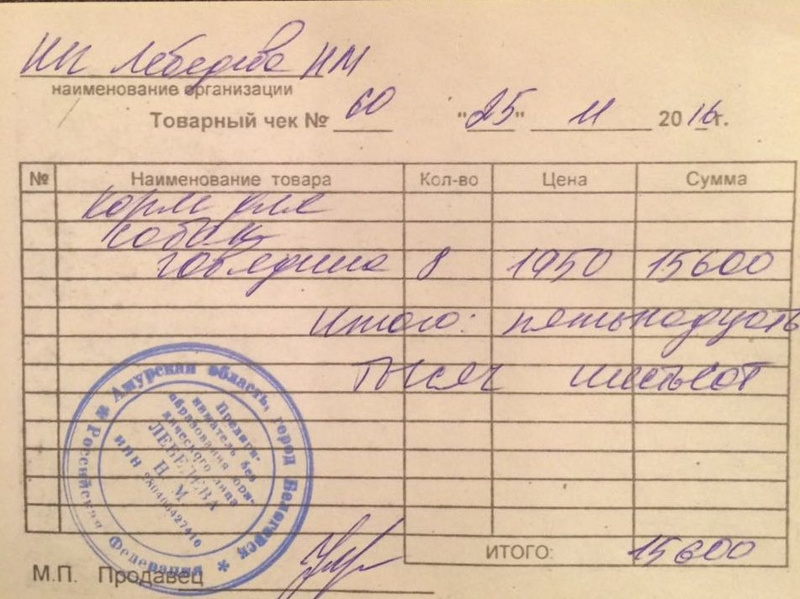 ИП Лебедева НМ
наименование организации
Товарный чек № 60 "25" 11 2016 г.
№ Наименование товара Кол-во Цена Сумма
корм для
собак
говядина 8 1950 15600
Итого: пятьнадцать
тысяч шестьсот
ИТОГО: 15600
М.П. Продавец
Российская Федерация * Амурская область, город Белогорск *
Предприни-
матель без
образования юри-
дического лица
ЛЕБЕДЕВА
Н. М.
ИНН 280400427416